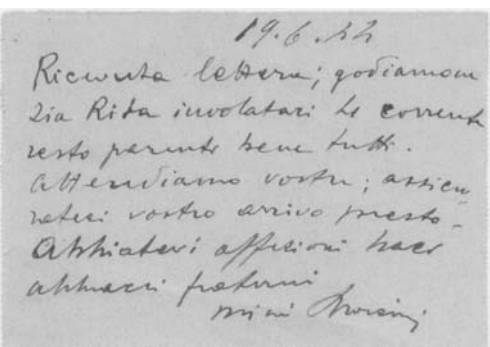 19.6.44
Ricevuta lettera; godiamoun
zia Rida involatasi 4 corrente
resto parenti bene tutti.
Attendiamo vostre; assicu
rateci vostro arrivo presto.
Abbiatevi affezioni baci
abbracci fraterni
mimi